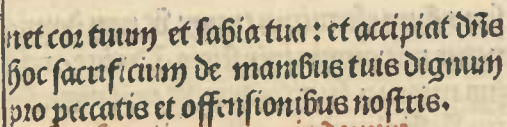 net cor tuum et labia tua : et accipiat dñs
hoc sacrificium de manibus tuis dignum
pro peccatis et offensionibus nostris.